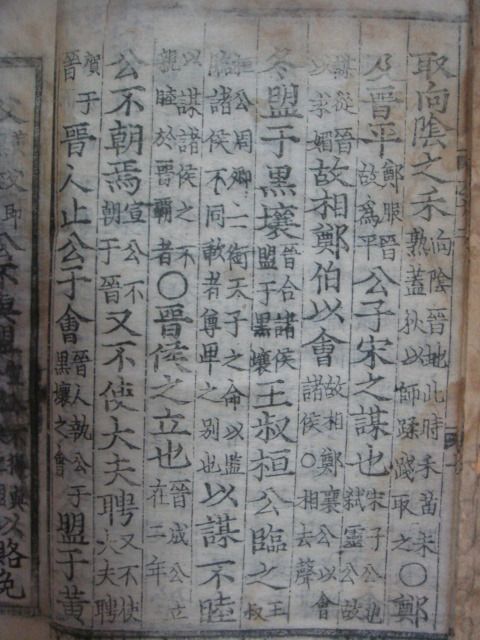 取向陰之禾向陰晉地此時禾苗未熟蓋狄以師蹂踐取之○鄭
及晉平鄭服晉故爲平公子宋之謀也宋子公也弑靈公故
謀從晉以求媚故相鄭伯以會故相鄭襄公以會諸侯○相去聲
冬盟于黑壤晉合諸侯盟于黑壤王叔桓公臨之王叔
桓公周卿士銜天子之命以監臨諸侯不同歃者尊卑之別也以謀不睦
以謀諸侯之不親睦於晉霸者○晉侯之立也晉成公立在二年
公不朝焉宣公不朝于晉又不使大夫聘又不使大夫聘
賀于晉晉人止公于會晉人執公于黑壤之會盟于黃
公不與盟以賂免